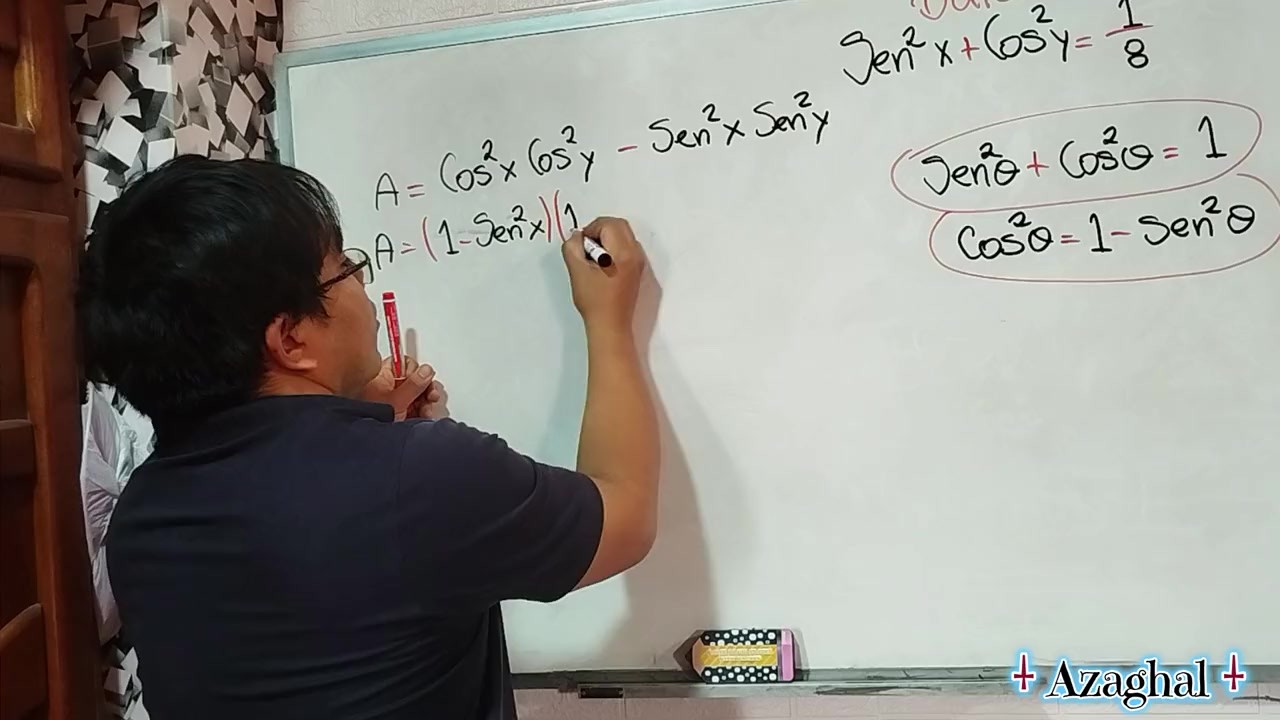 Sen²x + Cos²y = 1/8
A = Cos²x Cos²y - Sen²x Sen²y
A = (1 - Sen²x)(1
Sen²θ + Cos²θ = 1
Cos²θ = 1 - Sen²θ
Azaghal